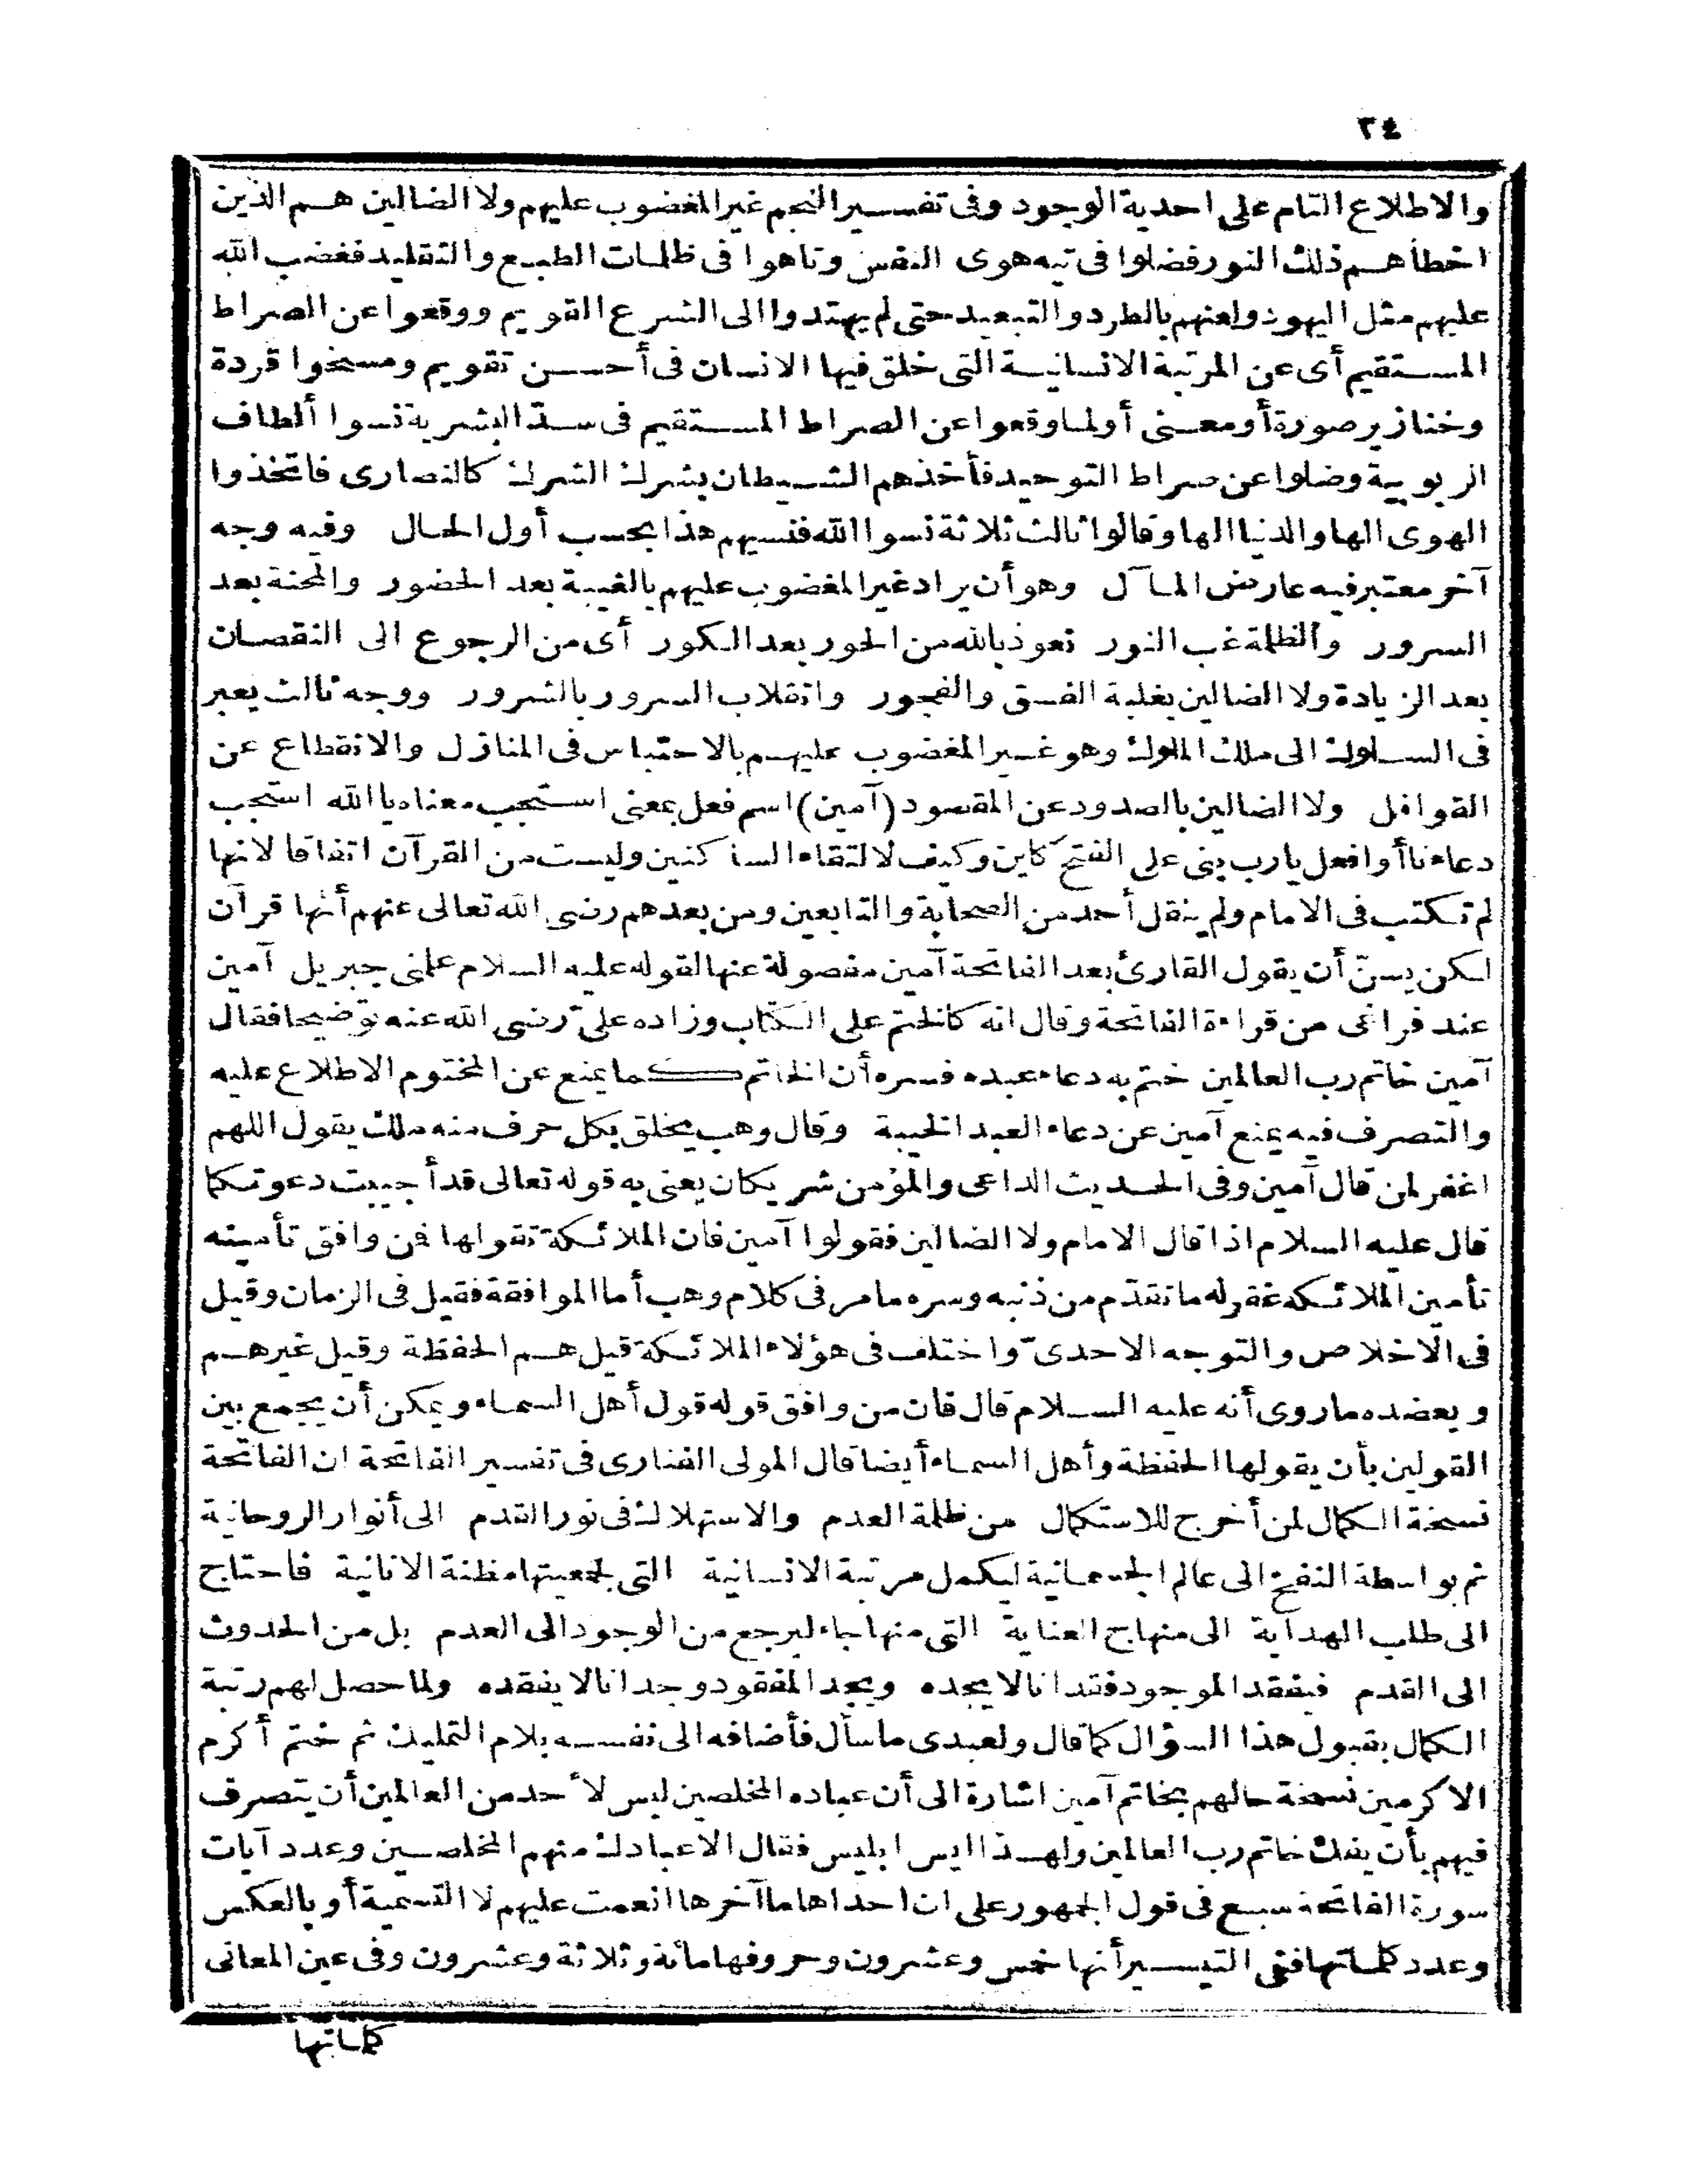 ٣٤
والاطلاع التام على احدية الوجود وفى تفسير النجم غير المغضوب عليهم ولا الضالين هم الذين
اخطأهم ذلك النور فضلوا فى تيه هوى النفس وتاهوا فى ظلمات الطبع والتقليد فغضب الله
عليهم مثل اليهود ولعنهم بالطرد والتبعيد حتى لم يهتدوا الى الشرع القويم ووقعوا عن الصراط
المستقيم أى عن المرتبة الانسانية التى خلق فيها الانسان فى أحسن تقويم ومسخوا قردة
وخنازير صورة أو معنى أو لما وقعوا عن الصراط المستقيم فى سدّ البشرية نسوا ألطاف
الربوبية وضلوا عن صراط التوحيد فأخذهم الشيطان بشرك الشرك كالنصارى فاتخذوا
الهوى الها والدنيا الها وقالوا ثالث ثلاثة نسوا الله فنسيهم هذا بحسب أول الحال وفيه وجه
آخر معتبر فيه عارض المآل وهو أن يراد غير المغضوب عليهم بالغيبة بعد الحضور والمحنة بعد
السرور والظلمة غب النور نعوذ بالله من الحور بعد الكور أى من الرجوع الى النقصان
بعد الزيادة ولا الضالين بغلبة الفسق والفجور وانقلاب السرور بالشرور ووجه ثالث يعبر
فى السلوك الى ملك الملوك وهو غير المغضوب عليهم بالاحتباس فى المنازل والانقطاع عن
القوافل ولا الضالين بالصدود عن المقصود (آمين) اسم فعل بمعنى استجب معناه يا الله استجب
دعاءنا أو افعل يا رب بنى على الفتح كاين وكيف لالتقاء الساكنين وليست من القرآن اتفاقا لانها
لم تكتب فى الامام ولم ينقل أحد من الصحابة والتابعين ومن بعدهم رضى الله تعالى عنهم أنها قرآن
لكن يسنّ أن يقول القارئ بعد الفاتحة آمين مفصولة عنها لقوله عليه السلام علمنى جبريل آمين
عند فراغى من قراءة الفاتحة وقال انه كالختم على الكتاب وزاده علىّ رضى الله عنه توضيحا فقال
آمين خاتم رب العالمين ختم به دعاء عبده فسره أن الخاتم كما يمنع عن المختوم الاطلاع عليه
والتصرف فيه يمنع آمين عن دعاء العبد الخيبة وقال وهب يخلق بكل حرف منه ملك يقول اللهم
اغفر لمن قال آمين وفى الحديث الداعى والمؤمن شريكان يعنى به قوله تعالى قد أجيبت دعوتكما
قال عليه السلام اذا قال الامام ولا الضالين فقولوا آمين فان الملائكة تقولها فمن وافق تأمينه
تأمين الملائكة غفر له ما تقدّم من ذنبه وسره ما مر فى كلام وهب أما الموافقة فقيل فى الزمان وقيل
فى الاخلاص والتوجه الاحدىّ واختلف فى هؤلاء الملائكة قيل هم الحفظة وقيل غيرهم
ويعضده ما روى أنه عليه السلام قال فان من وافق قوله قول أهل السماء ويمكن أن يجمع بين
القولين بأن يقولها الحفظة وأهل السماء أيضا قال المولى الفنارى فى تفسير الفاتحة ان الفاتحة
نسخة الكمال لمن أخرج للاستكمال من ظلمة العدم والاستهلاك فى نور القدم الى أنوار الروحانية
ثم بواسطة النفخ الى عالم الجسمانية ليكمل مرتبة الانسانية التى لجمعيتها مظنة الانانية فاحتاج
الى طلب الهداية الى منهاج العناية التى منها جاء ليرجع من الوجود الى العدم بل من الحدوث
الى القدم فيفقد الموجود فقدانا لا يجده ويجد المفقود وجدانا لا يفقده ولما حصل لهم رتبة
الكمال بقبول هذا السؤال كما قال ولعبدى ما سأل فأضافه الى نفسه بلام التمليك ثم ختم أكرم
الاكرمين نسخة حالهم بخاتم آمين اشارة الى أن عباده المخلصين ليس لأحد من العالمين أن يتصرف
فيهم بأن يفك خاتم رب العالمين ولهذا ايس ابليس فقال الا عبادك منهم المخلصين وعدد آيات
سورة الفاتحة سبع فى قول الجمهور على ان احداها ما آخرها انعمت عليهم لا التسمية أو بالعكس
وعدد كلماتها ففى التيسير أنها خمس وعشرون وحروفها مائة وثلاثة وعشرون وفى عين المعانى
كلماتها